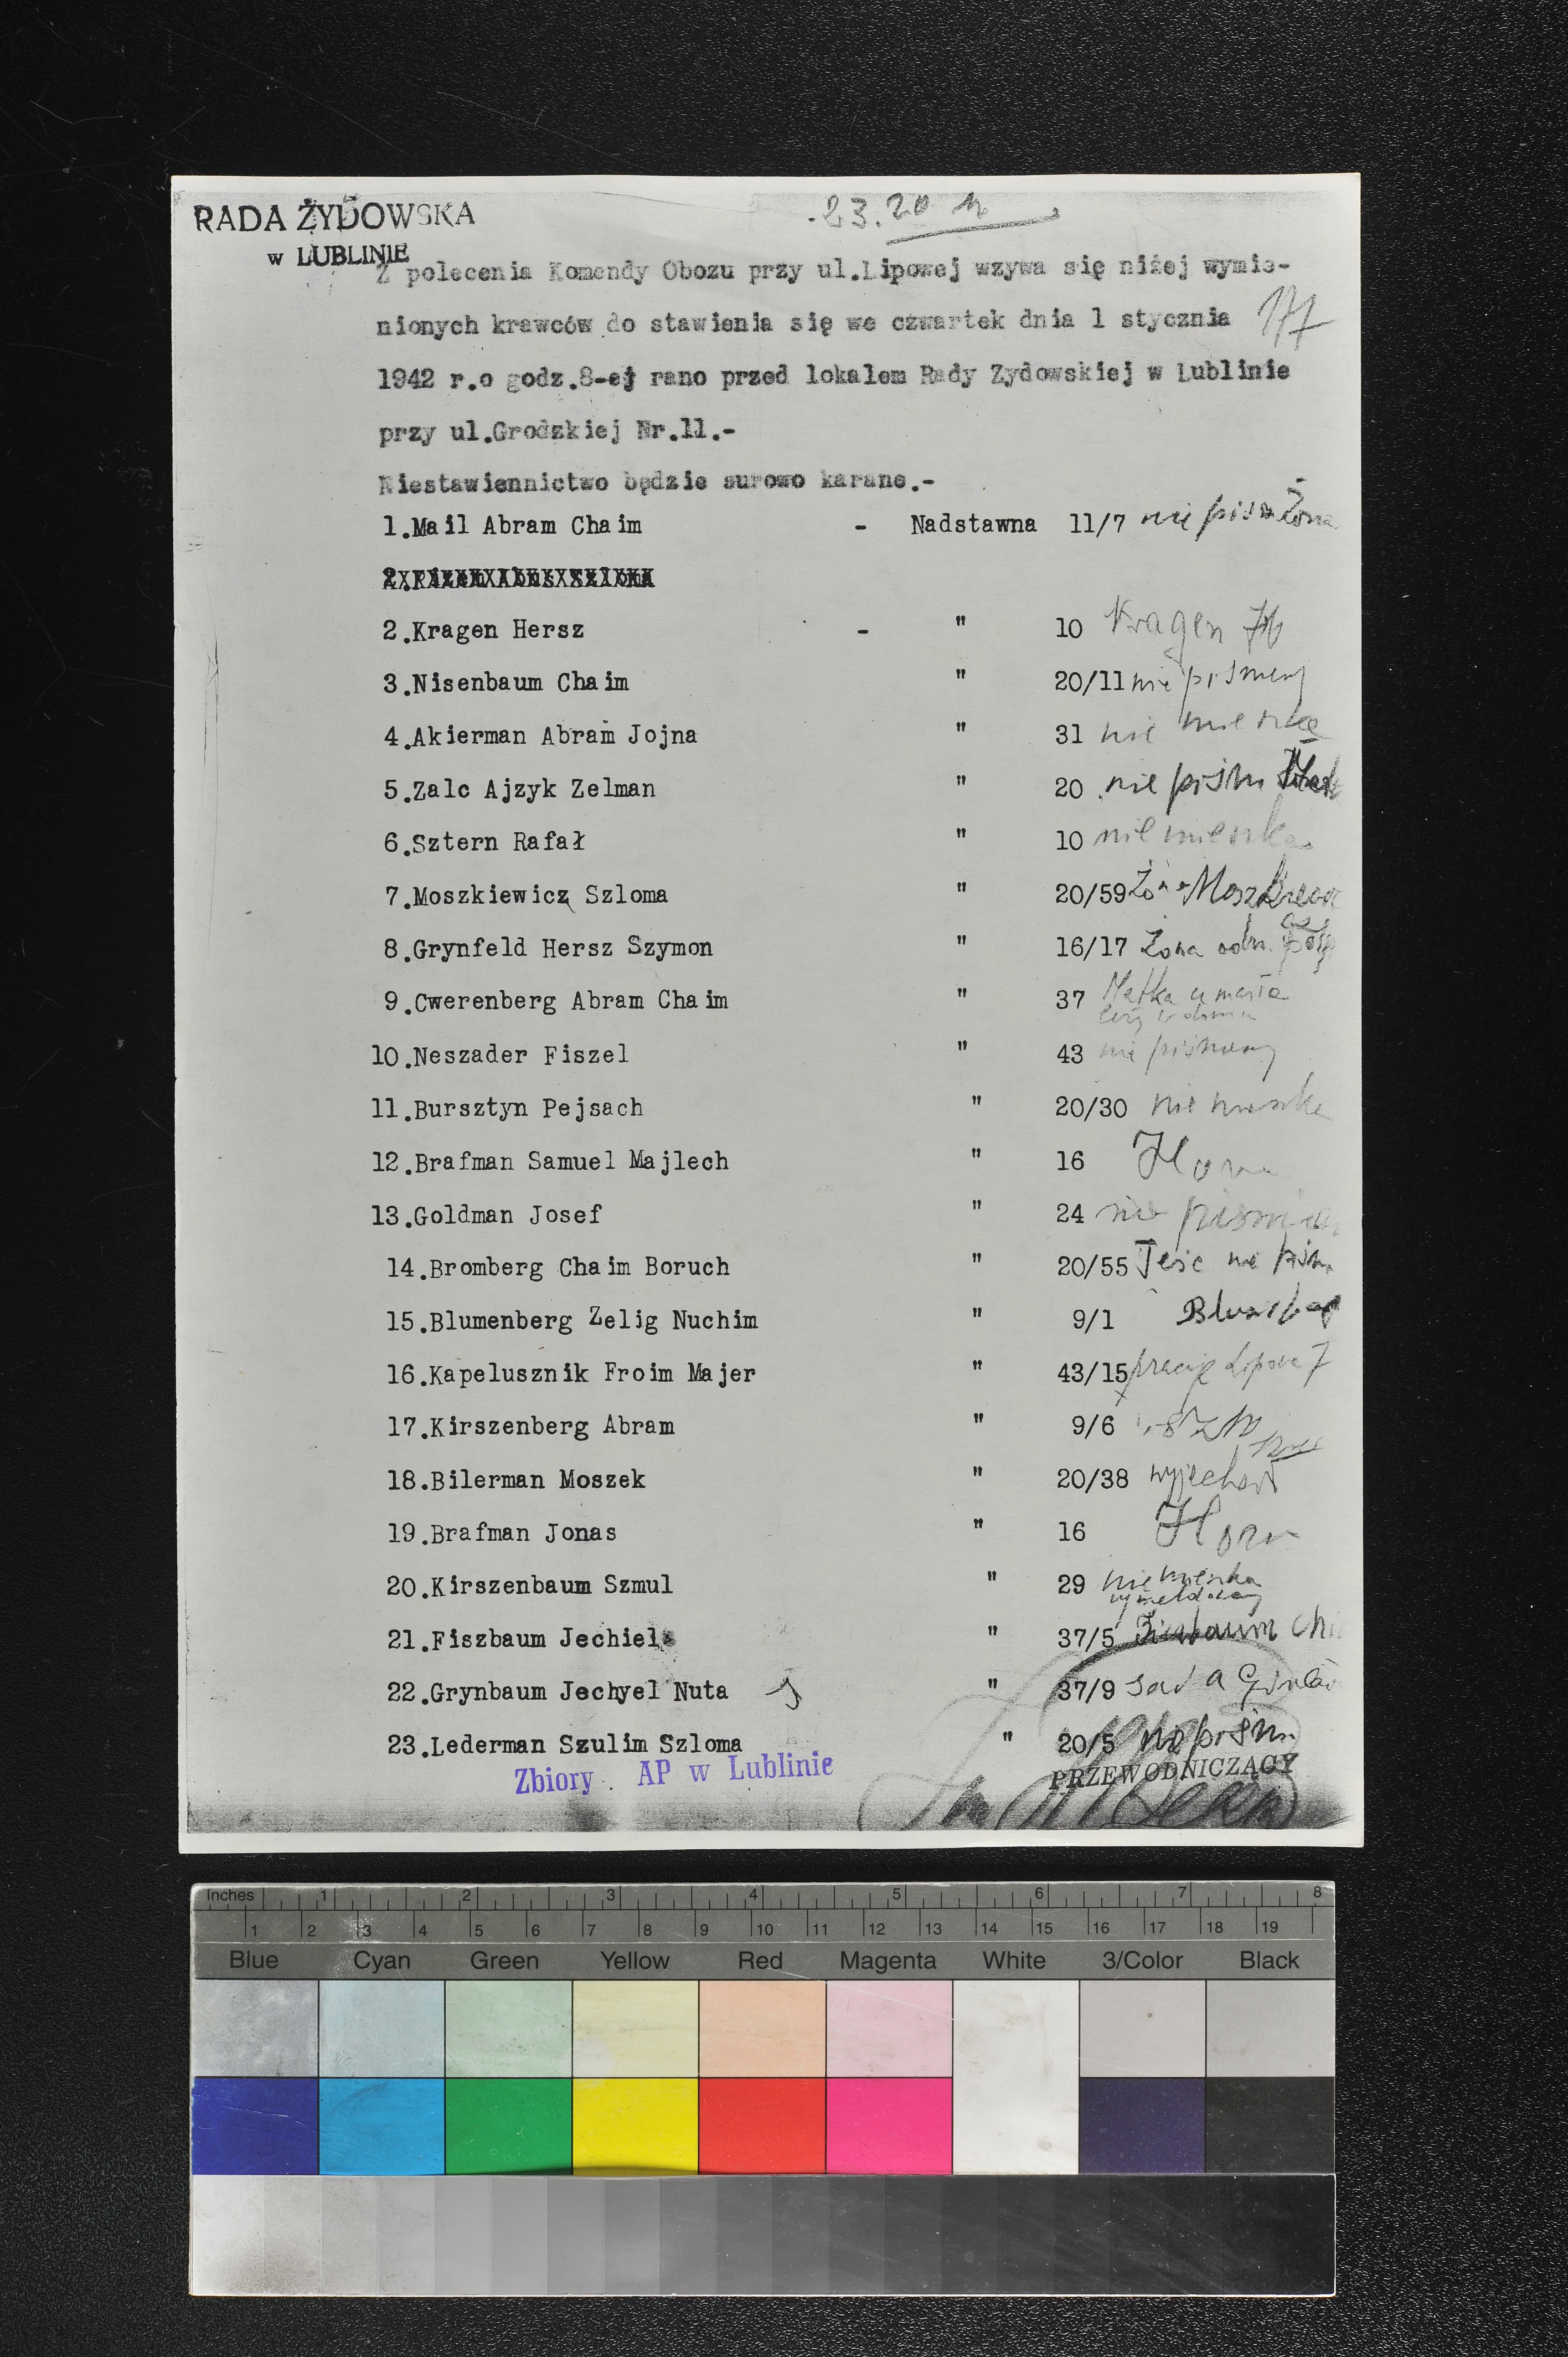 RADA ŻYDOWSKA
w LUBLINIE
23.20
Z polecenia Komendy Obozu przy ul.Lipowej wzywa się niżej wymie-
nionych krawców do stawienia się we czwartek dnia 1 stycznia
177
1942 r.o godz.8-ej rano przed lokalem Rady Zydowskiej w Lublinie
przy ul.Grodzkiej Nr.11.-
Niestawiennictwo będzie surowo karane.-
1.Mail Abram Chaim - Nadstawna 11/7 nie Żona
2.Kragen Hersz - " 10 Kragen H
3.Nisenbaum Chaim " 20/11 nie pismeny
4.Akierman Abram Jojna " 31 nie
5.Zalc Ajzyk Zelman " 20 nie piśm
6.Sztern Rafał " 10 nie mieszka
7.Moszkiewicz Szloma " 20/59 Żona
8.Grynfeld Hersz Szymon " 16/17 Żona odm.
9.Cwerenberg Abram Chaim " 37 Matka umarła
10.Neszader Fiszel " 43 nie piśmieny
11.Bursztyn Pejsach " 20/30 nie mieszka
12.Brafman Samuel Majlech " 16 Horn
13.Goldman Josef " 24 nie
14.Bromberg Chaim Boruch " 20/55 Teść nie piśm
15.Blumenberg Zelig Nuchim " 9/1
16.Kapelusznik Froim Majer " 43/15 pracuje Lipowa 7
17.Kirszenberg Abram " 9/6
18.Bilerman Moszek " 20/38 wyjechał
19.Brafman Jonas " 16 Horn
20.Kirszenbaum Szmul " 29 nie mieszka
21.Fiszbaum Jechiel " 37/5 Fiszbaum
22.Grynbaum Jechyel Nuta " 37/9
23.Lederman Szulim Szloma " 20/5 nie piśm.
Zbiory AP w Lublinie
PRZEWODNICZĄCY
Inches 1 2 3 4 5 6 7 8
1 2 3 4 5 6 7 8 9 10 11 12 13 14 15 16 17 18 19
Blue Cyan Green Yellow Red Magenta White 3/Color Black